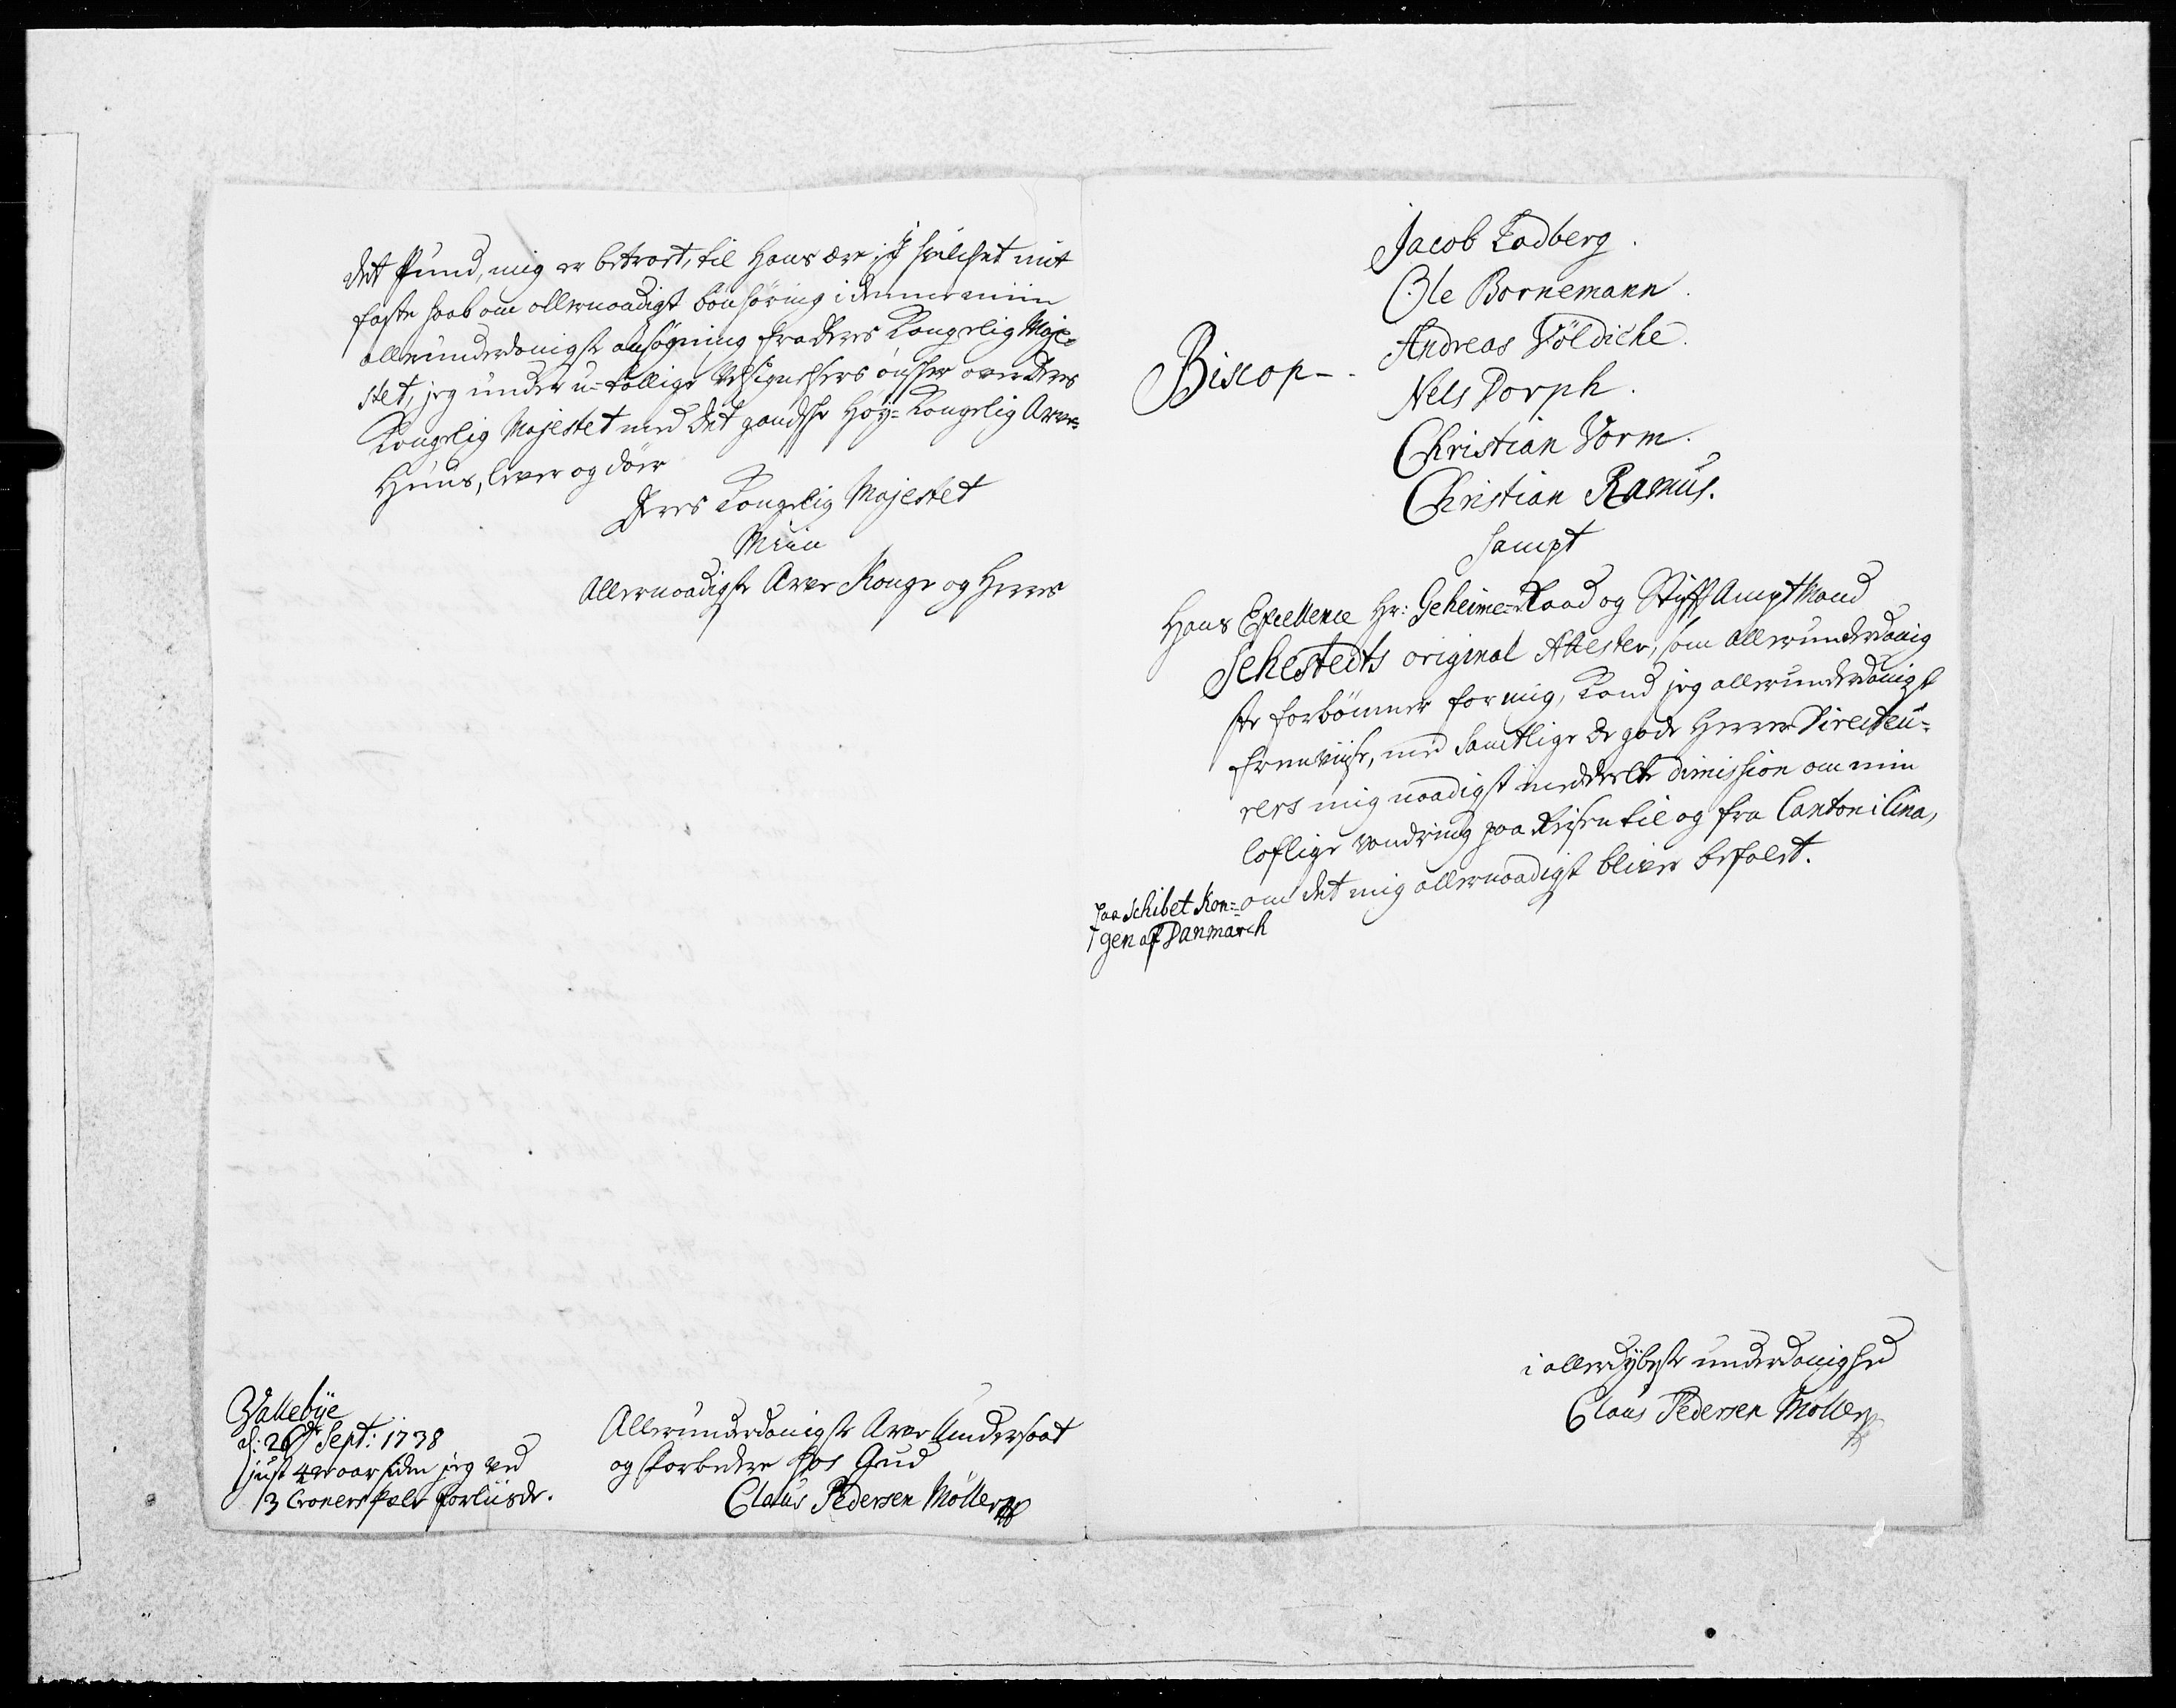 det Pund, mig er betroet, til Hans ære; I hvilchet mit
faste haab om allernaadigst bönhöring i denne min
allerunderdanigste ansögning fra Deres Kongelig Maje-
stet, jeg under u-tallige Velsignelsers önsker over Deres
Kongelig Majestet med det gandske Høy-Kongelig Arve-
Huus, lever og döer
Deres Kongelig Majestet
Miin
Allernaadigste Arve Konge og Herres
Vallebÿe
d: 26 Sept: 1738
just 4re aar siden jeg ved
13 Croners forliisde.
Allerunderdanigste Arve Undersaat
og forbedere hos Gud
Claus Pedersen Möller
Biscop-
Jacob Lodberg.
Ole Bornemann.
Andreas Völdiche.
Nels Dorph.
Christian Vorm.
Christian Ramus.
sampt
Hans Excellence Hr: Geheime-Raad og Stifft AmptMand
Sehestedts original Attester, som allerunderdanig
ste forbönner for mig, Kand jeg allerunderdanigst
fremviise, med samtlige de gode Herrer Directeu-
rers mig naadigst meddeelte dimission om min
loflige vandring paa Reisen til og fra Canton i Cina,
paa schibet Kon- om det mig allernaadigst bliver befalet.
gen af Danmarch
i allerdybeste underdanighed
Claus Pedersen Möller